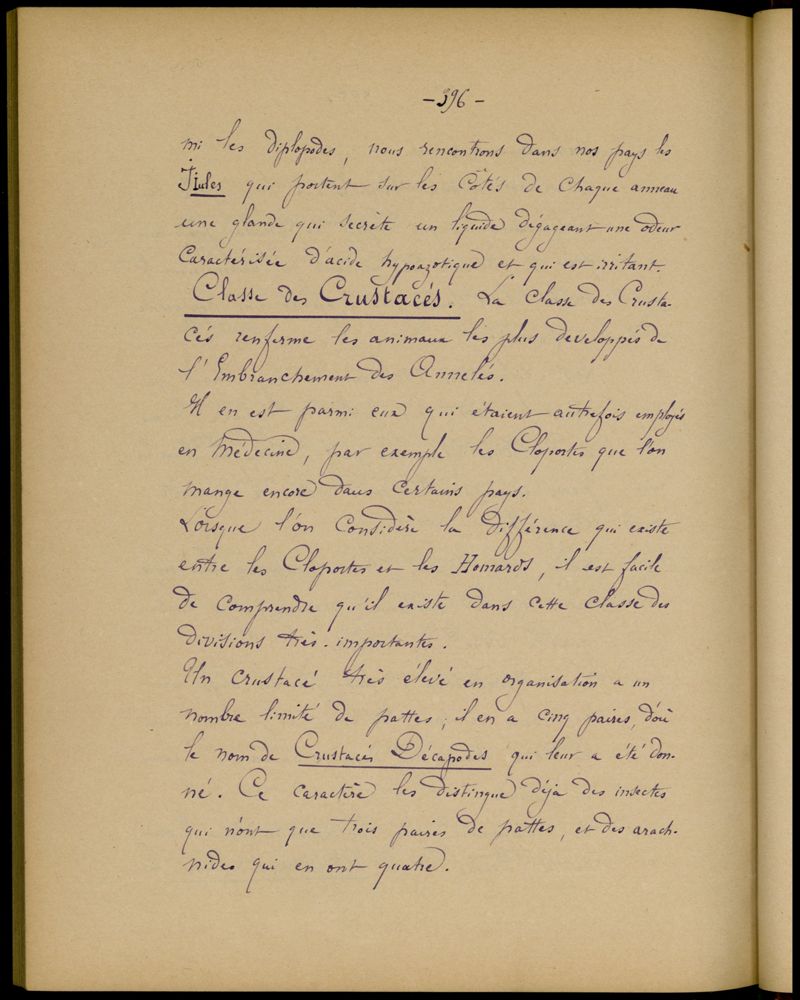 -396-
mi les diplopodes, nous rencontrons dans nos pays les
Iules qui portent sur les côtés de chaque anneau
une glande qui secrète un liquide dégageant une odeur
caractérisée d'acide hypoazotique et qui est irritant.
Classe des Crustacés. La classe des Crusta-
cés renferme les animaux les plus developpés de
l'Embranchement des Annelés.
Il en est parmi eux qui étaient autrefois employés
en Médecine, par exemple les Cloportes que l'on
mange encore dans certains pays.
Lorsque l'on considère la différence qui existe
entre les Cloportes et les Homards, il est facile
de comprendre qu'il existe dans cette classe des
divisions très-importantes.
Un crustacé très élevé en organisation a un
nombre limité de pattes; il en a cinq paires, d'où
le nom de Crustacés Décapodes qui leur a été don-
né. Ce caractère les distingue déjà des insectes
qui n'ont que trois paires de pattes, et des arach-
nides qui en ont quatre.